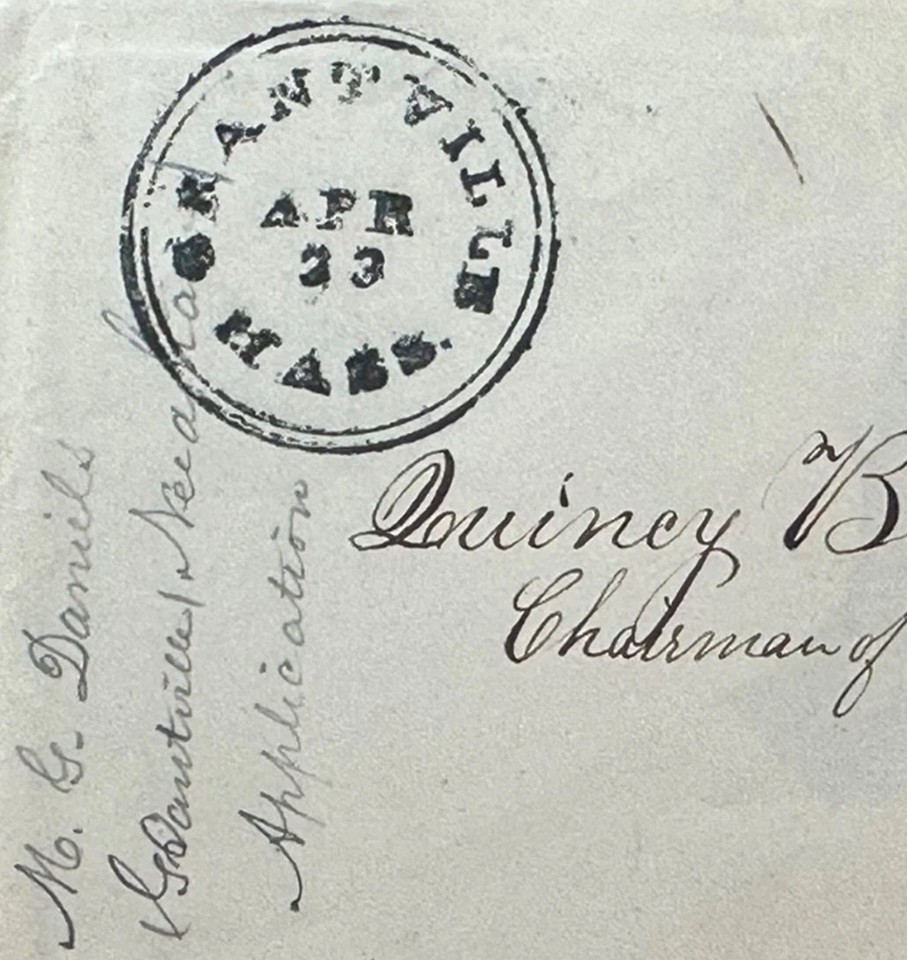 GRANTVILLE
APR
23
MASS.
Quincy B
Chairman of
M. G. Daniels
Grantville
Application